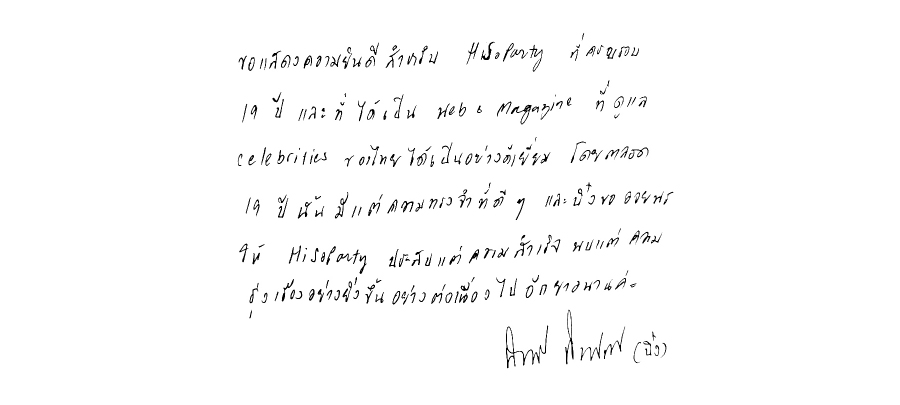 ขอแสดงความยินดี สำหรับ HiSoParty ที่ครบรอบ
19 ปี และที่ ได้เป็น Web & Magazine ที่ดูแล
celebrities ของไทยได้เป็นอย่างดีเยี่ยม โดยตลอด
19 ปี นั้น มีแต่ความทรงจำที่ดี ๆ และปิ๋งขออวยพร
ให้ HiSoParty ประสบแต่ความสำเร็จ พบแต่ความ
รุ่งเรืองอย่างยิ่งขึ้นอย่างต่อเนื่องไปอีกยาวนานค่ะ
(ปิ๋ง)